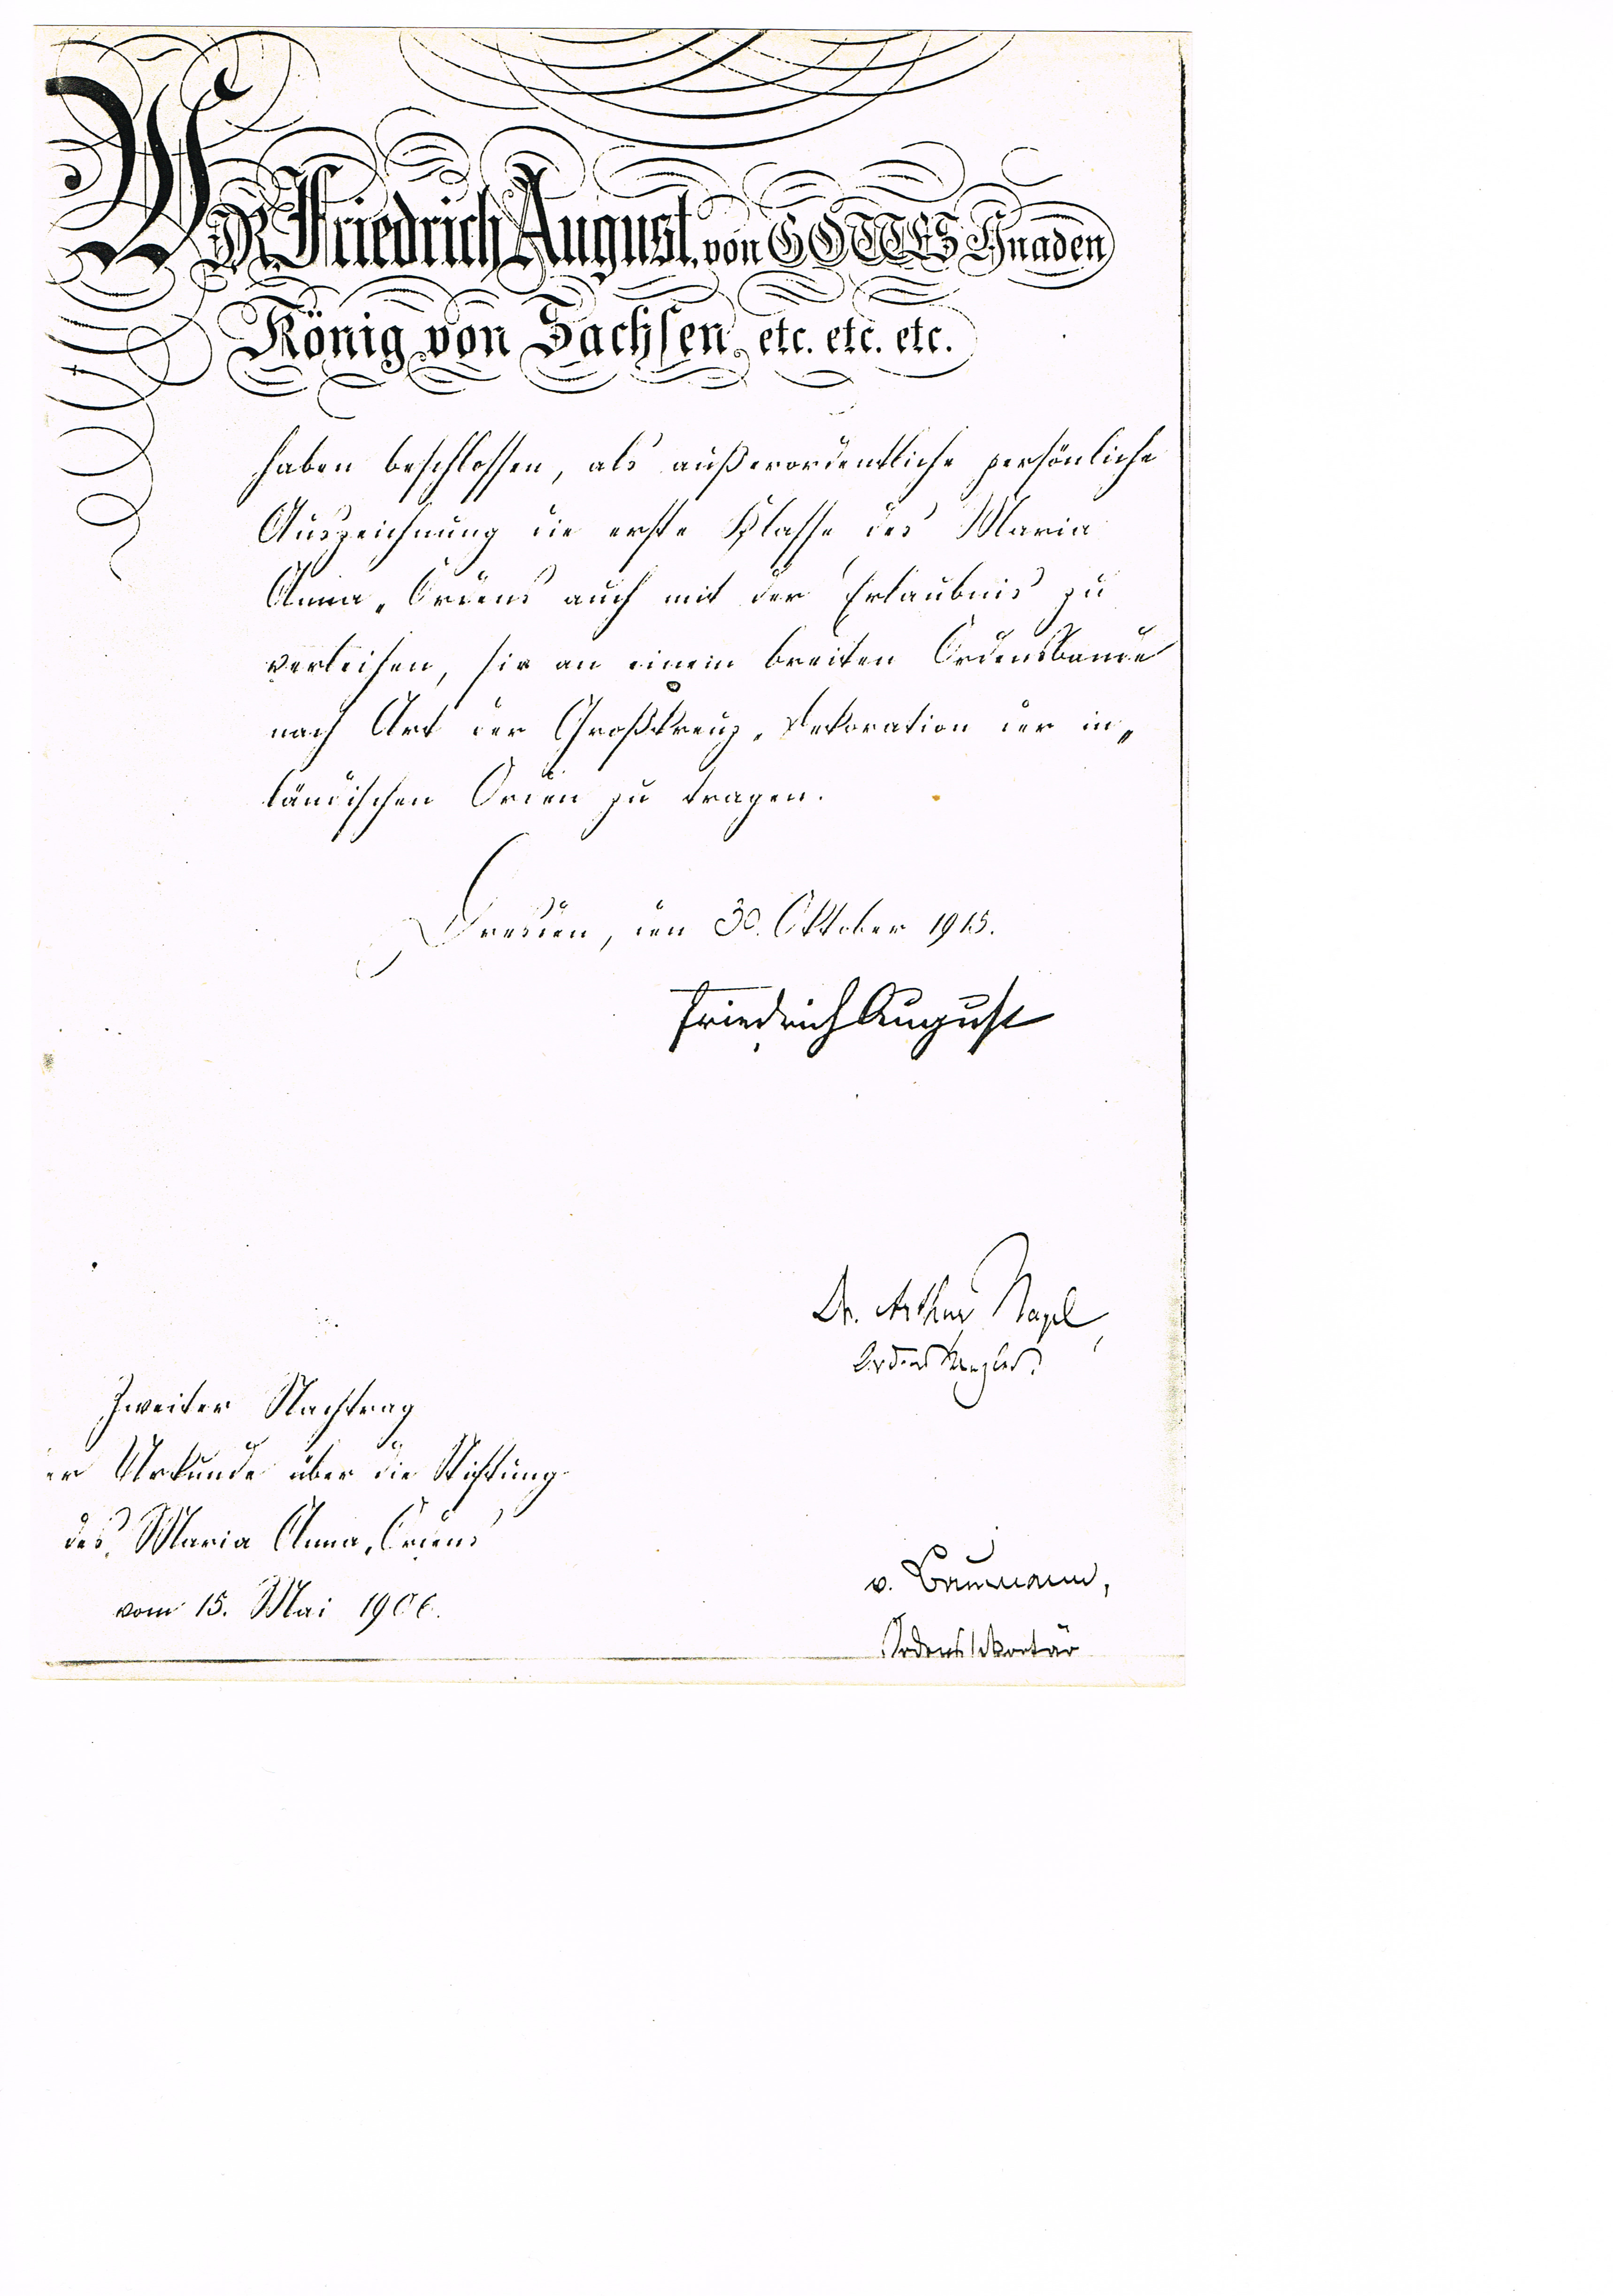 WIR Friedrich August, von GOTTES Gnaden
König von Sachsen etc. etc. etc.
haben beschlossen, als außerordentliche persönliche
Auszeichnung die erste Klasse des Maria
Anna-Ordens auch mit der Erlaubnis zu
verleihen, sie an einem breiten Ordensbande
nach Art der Großkreuz-Dekoration der in-
ländischen Orden zu tragen.
Dresden, den 30. Oktober 1915.
Friedrich August
Dr. Arthur Nagel,
Ordenskanzler.
Zweiter Nachtrag
er Urkunde über die Stiftung
des Maria Anna-Ordens
vom 15. Mai 1906.
v. Baumann,
Ordenssekretär